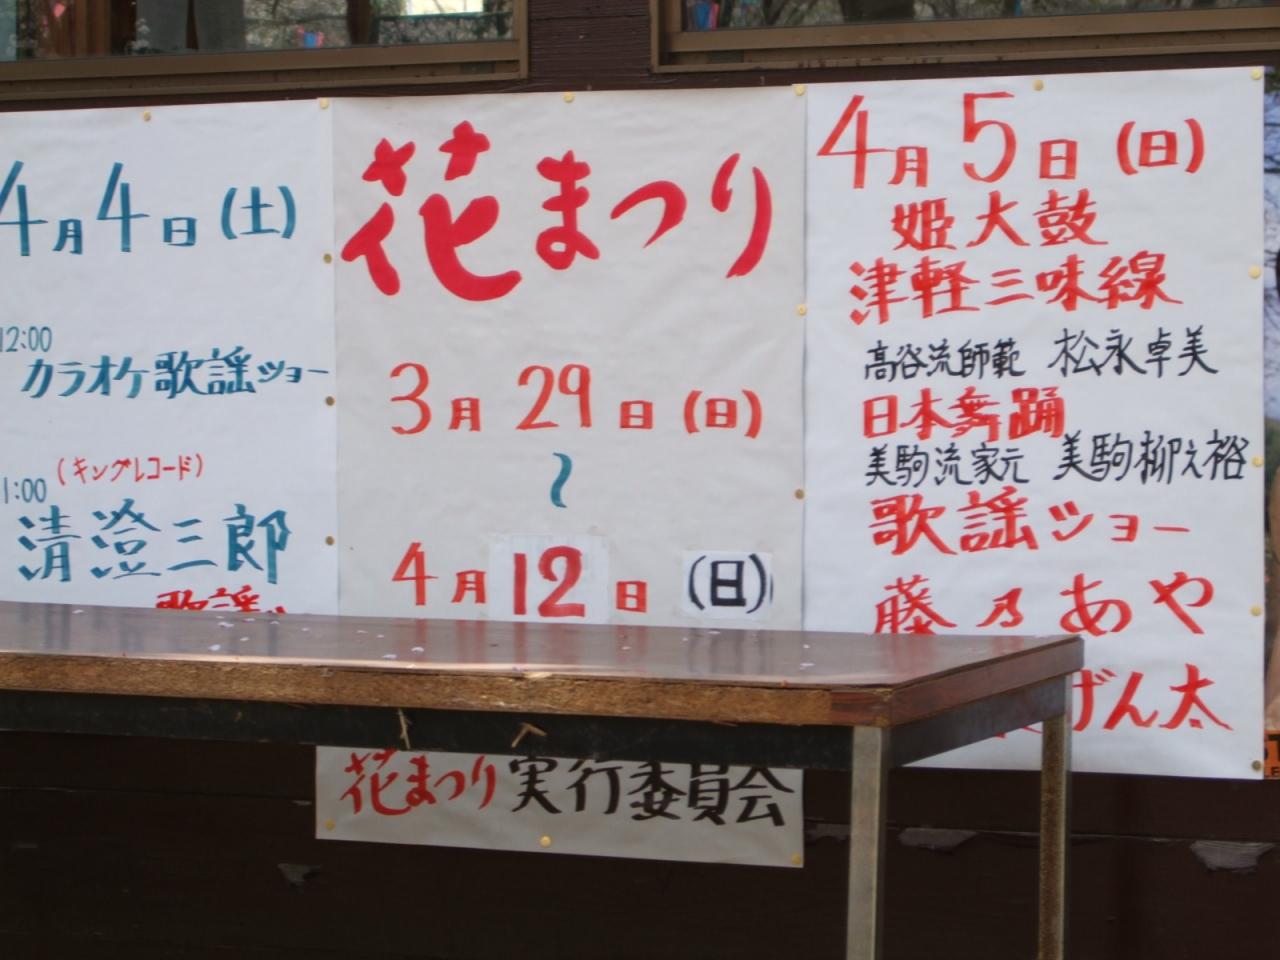 4月4日(土)
12:00
カラオケ歌謡ショー
(キングレコード)
1:00
清澄三郎
歌謡
花まつり
3月29日(日)
〜
4月12日(日)
花まつり実行委員会
4月5日(日)
姫太鼓
津軽三味線
高谷流師範 松永卓美
日本舞踊
美駒流家元 美駒柳之裕
歌謡ショー
藤乃あや
げん太